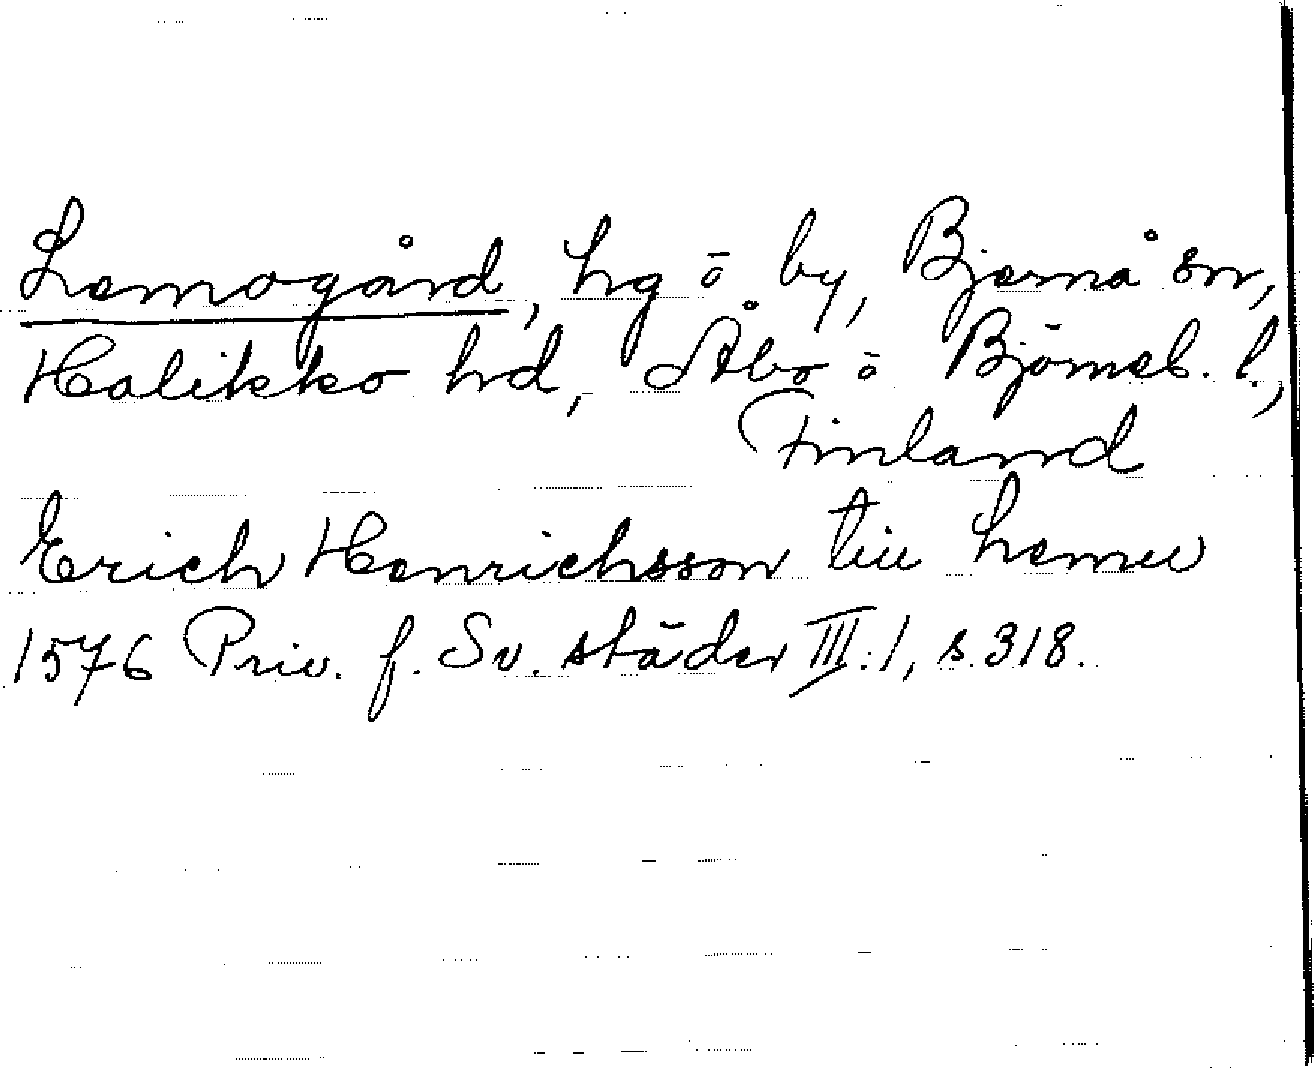 Lemogård, hg ō by, Bjernå sn,
Halikko hd, Åbo ō Björneb. l.,
Finland
Erich Henrichsson till Lemu
1576 Priv. f. Sv. städer III:1, s. 318.